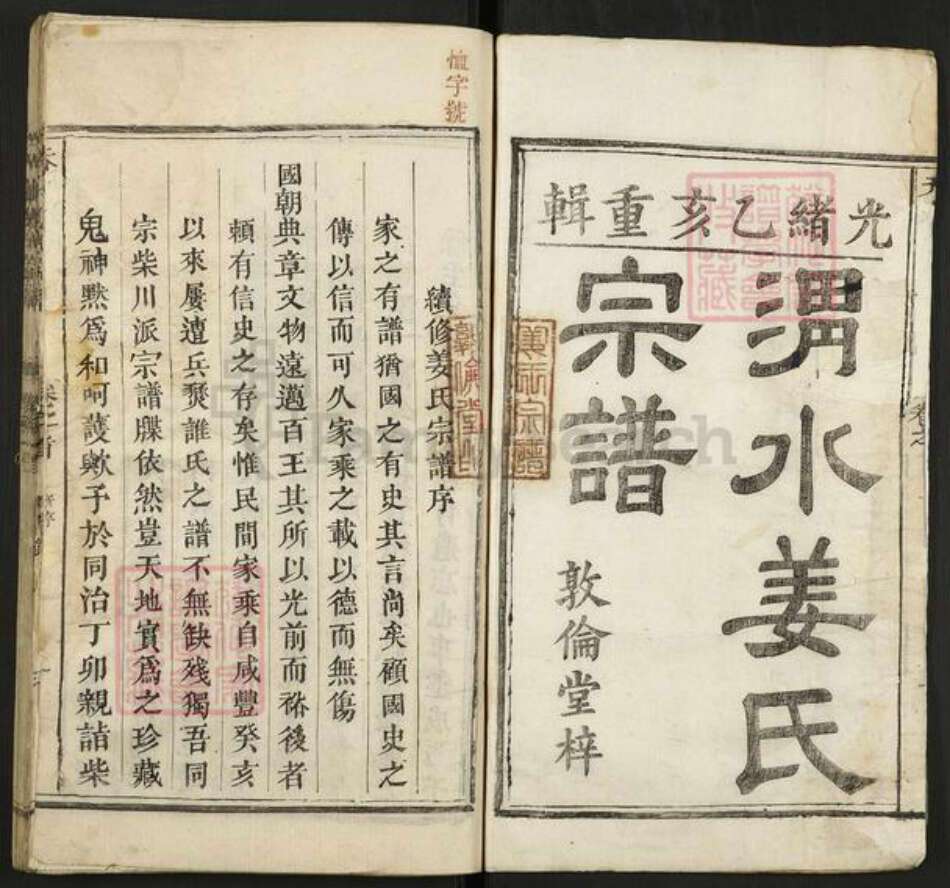 光緒乙亥重輯
渭水姜氏
宗譜
敦倫堂梓
恤字號
續修姜氏宗譜序
家之有譜猶國之有史其言尚矣顧國史之
傳以信而可久家乘之載以德而無傷
國朝典章文物遠邁百王其所以光前而裕後者
賴有信史之存矣惟民間家乘自咸豐癸亥
以來屢遭兵燹誰氏之譜不無缺殘獨吾同
宗柴川派宗譜牒依然豈天地實為之珍藏
鬼神黙為和呵護歟予於同治丁卯親詣柴